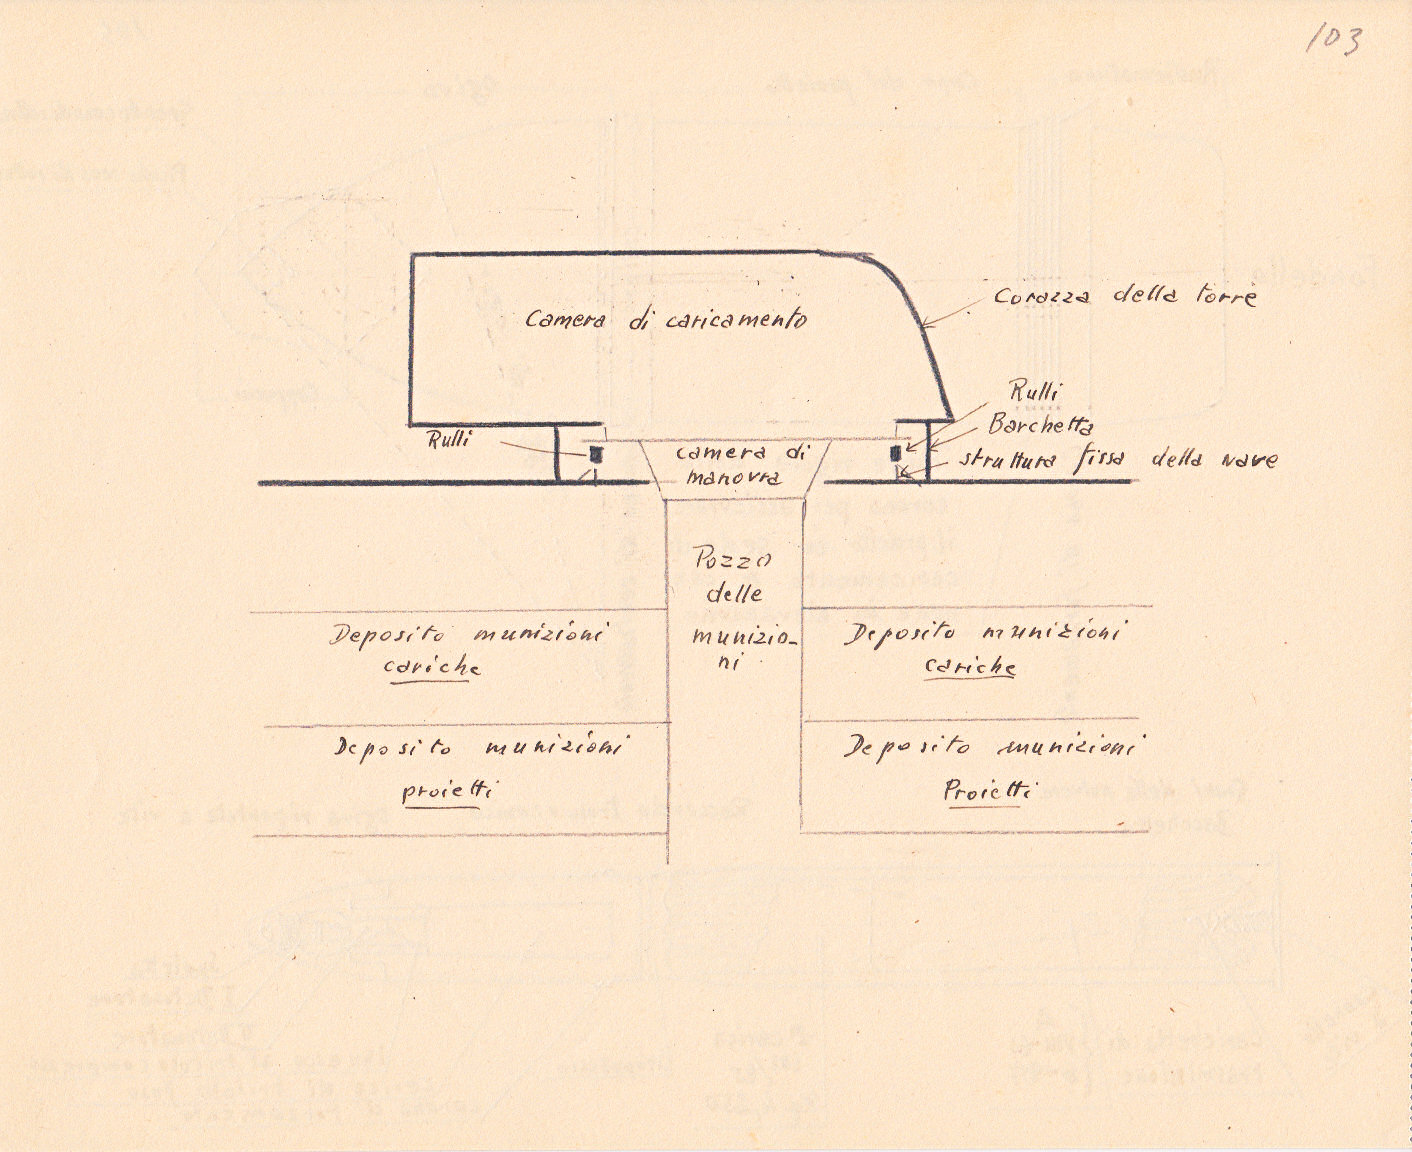 103
Camera di caricamento
Corazza della torre
Rulli
Barchetta
struttura fissa della nave
Rulli
camera di
manovra
Pozzo
delle
munizio-
ni
Deposito munizioni
cariche
Deposito munizioni
cariche
Deposito munizioni
proietti
Deposito munizioni
Proietti